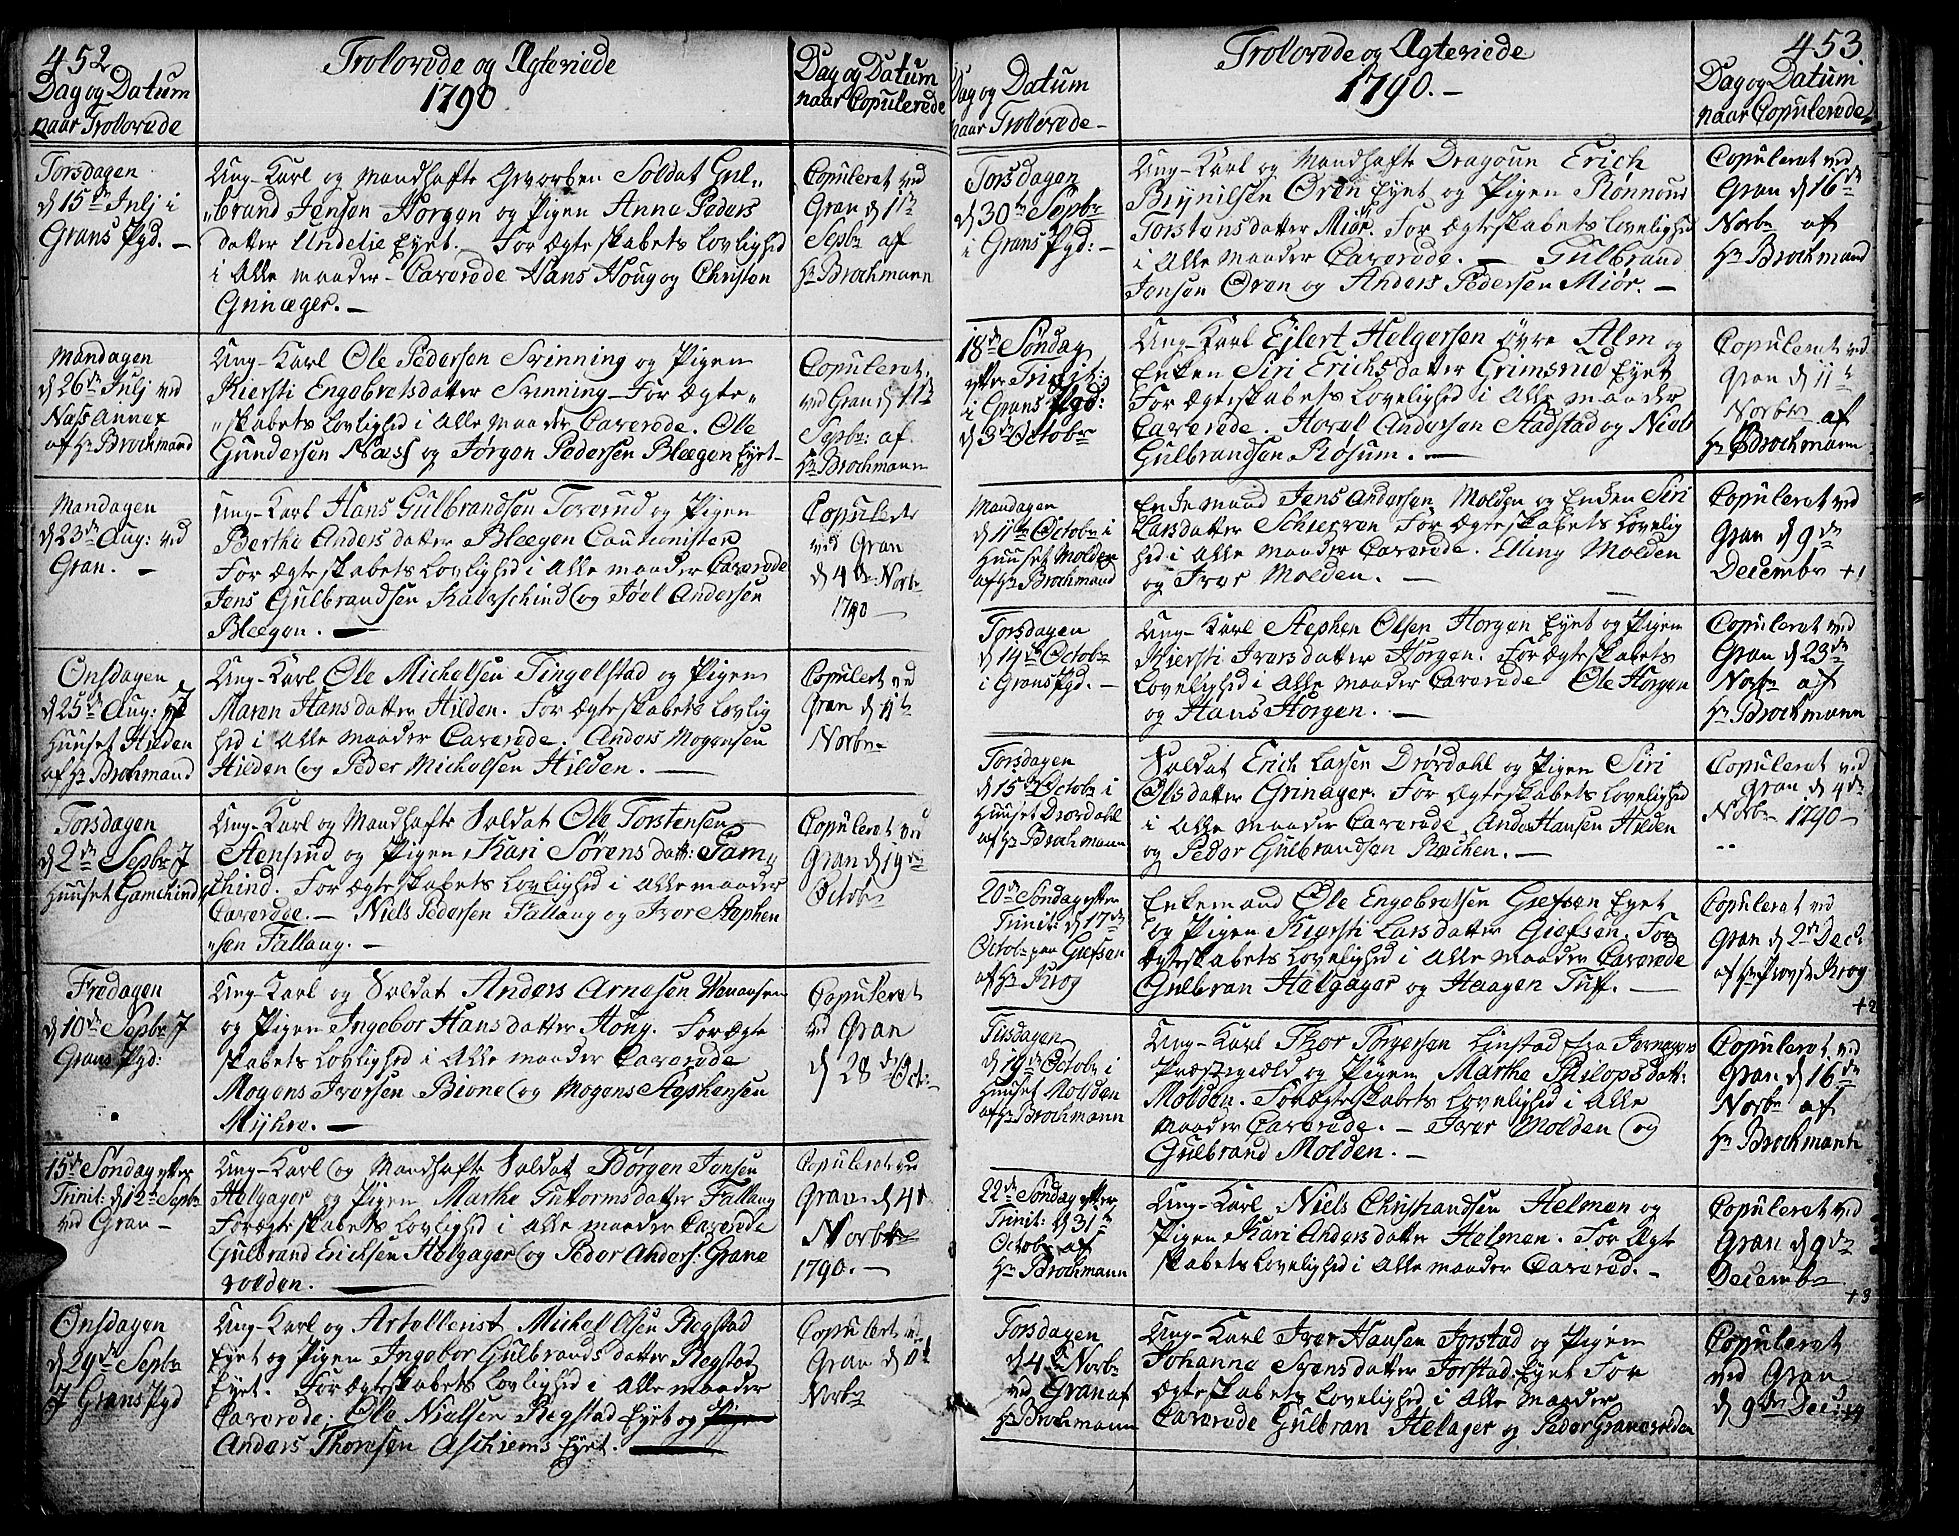 452
Dag og Datum
naar Trolovede
Trolovede og Ægteviede
1790
Dag og Datum
naar Copulerede
Torsdagen
d 15de Julj i
Grans Pgd. —
Ung-Karl og Mandhafte Gevorben Soldat Gul„
„brand Jensen Horgen og Pigen Anne Peders
datter Undelie Eyet. — For Ægteskabets Lovlighed
i Alle maader — Caverede Hans Houg og Christen
Grinager. —
Copuleret ved
Gran d 11te
Sepbr af
Hr Brochmann
Mandagen
d 26de Julj ved
Næss Annex
af Hr Brochmand
Ung-Karl Ole Pedersen Svinning og Pigen
Kiersti Engebretsdatter Svinning — For Ægte„
„skabets Lovlighed i Alle maader Caverede. Ole
Gundersen Næss og Jørgen Pedersen Bleegen Eyet —
Copuleret
ved Gran d 11te
Sepbr: af
Hr Brochmann
Mandagen
d 23de Aug: ved
Gran. —
Ung-Karl Hans Gulbrandsen Toverud og Pigen
Berthe Andersdatter Bleegen Cautionister
For Ægteskabets Lovlighed i Alle maader Caverede
Jens Gulbrandsen Kaarschind og Joel Andersen
Bleegen. —
Copulede
ved Gran
d 4de Novbr
1790 —
Onsdagen
d 25de Aug: i
Huuset Hilden
af Hr Brochmand
Ung-Karl Ole Michelsen Tingelstad og Pigen
Maren Hansdatter Hilden. For Ægteskabets Lovlig
hed i Alle maader Caverede. Anders Mogensen
Hilden og Peder Michelsen Hilden. —
Copuleret ved
Gran d 11te
Novbr
Torsdagen
d 2de Sepbr J
Huuset Gamchind
Ung-Karl og Mandhafte Soldat Ole Torstensen
Hensrud og Pigen Kari Sørensdatt: Gam„
chind. For Ægteskabets Lovlighed i Alle maader
Caverede. — Niels Pedersen Fallang og Iver Stephen
„sen Fallang. —
Copuleret ved
Gran d 19de
Octobr
Fredagen
d 10de Sepbr J
Grans Pgd:
Ung-Karl og Soldat Anders Arnesen
og Pigen Ingebor Hansdatter Houg. For Ægte
skabets Lovlighed i Alle maader Caverede
Mogens Iversen Bione og Mogens Stephensen
Myhre. —
Copuleret
ved Gran
d 28de Oct:
15de Søndag efter
Trinit: d 12te Sepbr
ved Gran —
Ung-Karl og Mandhafte Soldat Børgen Jonsen
Helgager og Pigen Marthe Guttormsdatter Fallang
For Ægteskabets Lovlighed i Alle maader Caverede
Gulbrand Ericksen Helgager og Peder Anders: Grane
volden. —
Copuleret ved
Gran d 4de
Novbr
1790. —
Onsdagen
d 29de Sepbr
J Grans Pgd
Ung-Karl og Artellerist Michel Olsen Regstad
Eyet og Pigen Ingebor Gulbrandsdatter Regstad
Eyet. For Ægteskabets Lovlighed i Alle maader
Caverede. Ole Nielsen Regstad Eyet og Pigen
Anders Thoresen Aschiems Eyet. —
Copuleret ved
Gran d 11te
Novbr
453.
Dag og Datum
naar Trolovede —
Trolovede og Ægteviede
1790. —
Dag og Datum
naar Copulerede
Torsdagen
d 30te Sepbr
i Grans Pgd: —
Ung-Karl og Mandhafte Dragoun Erich
Brynilsen Øren Eyet og Pigen Rønnoug
Torstensdatter Miør. For Ægteskabets Lovelighed
i Alle maader Caverede. — Gulbrand
Jonsen Øren og Anders Pedersen Miør. —
Copuleret ved
Gran d 16de
Novbr af
Hr Brochmand
18de Søndag
efter Trinit:
i Grans Pgd:
d 3de Octobr
Ung-Karl Ejlert Helgersen øvre Alm og
Enken Siri Erichsdatter Grimsrud Eyet
For Ægteskabets Lovelighed i Alle maader
Caverede. Hovel Andersen Stadstad og Niels
Gulbrandsen Røsum. —
Copuleret ved
Gran d 11te
Novbr af
Hr Brochmann
Mandagen
d 11te Octobr i
Huuset Molden
af Hr Brochmand
Enkemand Jens Andersen Molden og Enken Siri
Larsdatter Schierven For Ægteskabets Lovelig
hed i Alle maader Caverede. Elling Molden
og Iver Molden. —
Copuleret ved
Gran d 9de
Decembr +1
Torsdagen
d 14de Octobr
i Grans Pgd. —
Ung-Karl Stephen Olsen Horgen Eyet og Pigen
Kiersti Iversdatter Horgen. For Ægteskabets
Lovelighed i Alle maader Caverede Ole Horgen
og Hans Horgen. —
Copuleret ved
Gran d 23de
Novbr af
Hr Brochmann
Torsdagen
d 15de Octobr i
Huuset Drordahl
af Hr Brochmann
Soldat Erich Larsen Drørdahl og Pigen Siri
Olsdatter Grinager. For Ægteskabets Lovelighed
i Alle maader Caverede. Anders Hansen Hilden
og Peder Gulbrandsen Rochen. —
Copuleret ved
Gran d 4de
Novbr 1790 —
20de Søndag efter
Trinit: d 17de
Octobr paa Giefsen
af Hr Krog
Enkemand Ole Engebretsen Giefsen Eyet
og Pigen Kiersti Larsdatter Giefsen. For
Ægteskabets Lovelighed i Alle maader Caverede
Gulbran Helgager og Haagen Tuff. —
Copuleret ved
Gran d 2de Decbr
af Hr Krog
+2
Tirsdagen
d 19de Octobr i
Huuset Molden
af Hr Brochmann
Ung-Karl Thor Torgersen Linstad fra Jevnagers
Præstegield og Pigen Marthe Philopsdatt:
Molden. For Ægteskabets Lovelighed i Alle
maader Caverede. — Iver Molden og
Gulbrand Molden. —
Copuleret ved
Gran d 16de
Novbr af
Hr Brochmann
22de Søndag efter
Trinit: d 31te
Octobr af
Hr Brochmann
Ung-Karl Niels Christiandsen Helmen og
Pigen Kari Andersdatter Helmen. For Ægte
skabets Lovelighed i Alle maader Cavered. —
Copuleret ved
Gran d 9de
Decembr
+3
Torsdagen
d 4de Novbr
ved Gran af
Hr Brochmann
Ung-Karl Iver Hansen Jorstad og Pigen
Johanne Svensdatter Jorstad Eyet For
Ægteskabets Lovelighed i Alle maader
Caverede Gulbran Helager og Peder Granevolden
Copuleret
ved Gran
d 9de Dec: +4